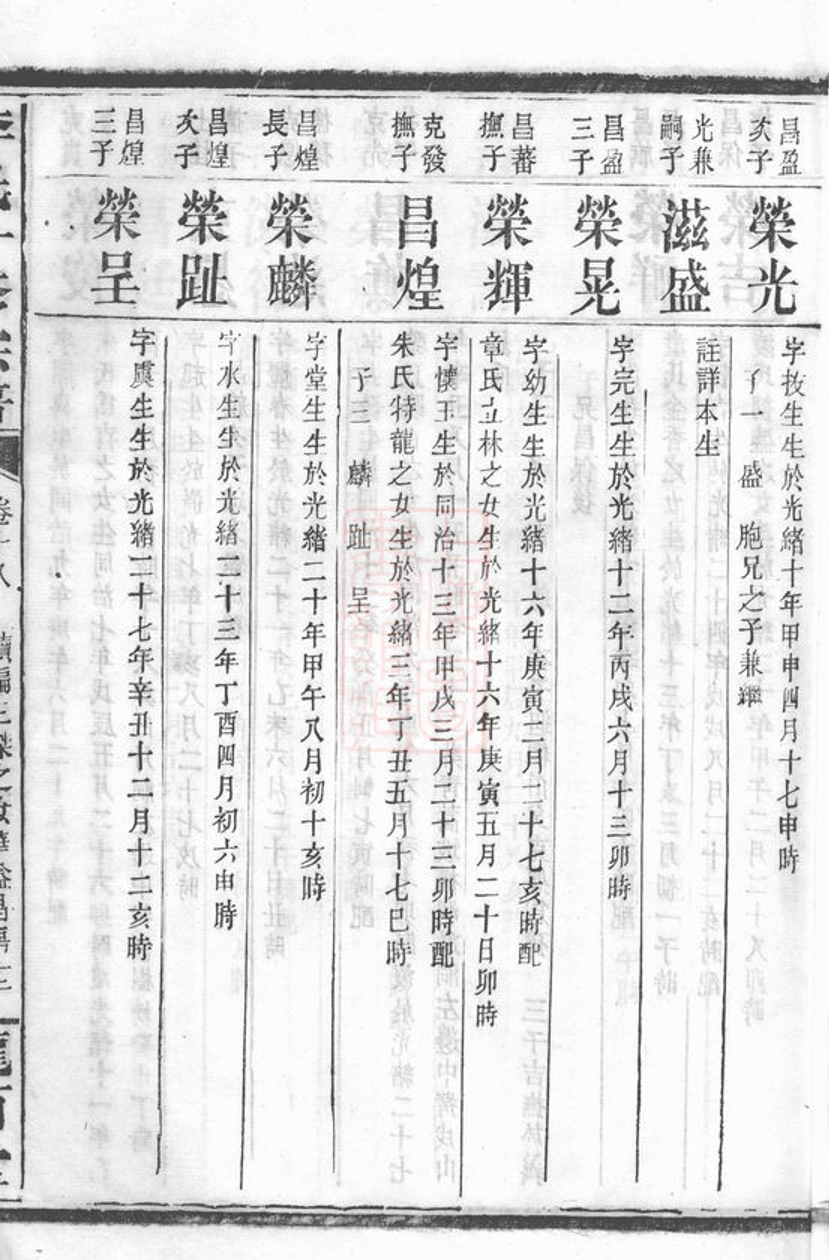 昌盈
次子
榮光
字技生生於光緒十年甲申四月十七申時
子一 盛 胞兄之子兼繼
光兼
嗣子
滋盛
註詳本生
昌盈
三子
榮晃
字完生生於光緒十二年丙戌六月十三卯時
昌蕃
撫子
榮輝
字幼生生於光緒十六年庚寅二月二十七亥時配
章氏立林之女生於光緒十六年庚寅五月二十日卯時
克發
撫子
昌煌
字懷玉生於同治十三年甲戌三月二十三卯時配
朱氏特龍之女生於光緒三年丁丑五月十七巳時
子三 麟 趾 呈
昌煌
長子
榮麟
字堂生生於光緒二十年甲午八月初十亥時
昌煌
次子
榮趾
字水生生於光緒二十三年丁酉四月初六由時
昌煌
三子
榮呈
字虞生生於光緒二十七年辛丑十二月十二亥時